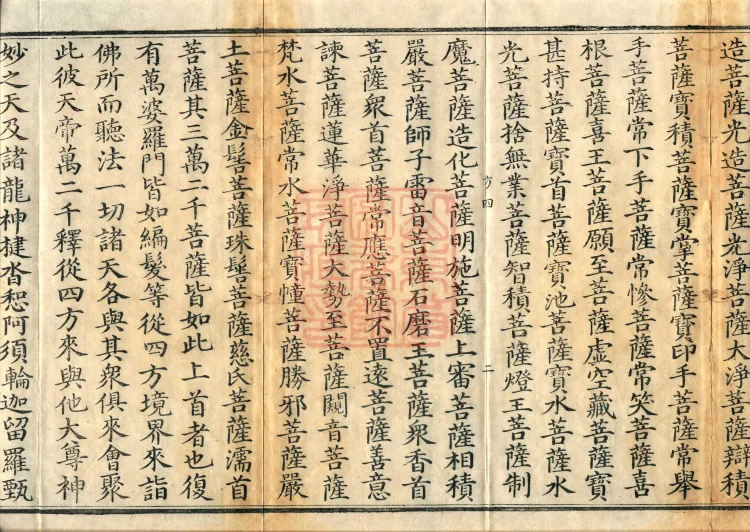 造菩薩光造菩薩光淨菩薩大淨菩薩辯積
菩薩寶積菩薩寶掌菩薩寶印手菩薩常舉
手菩薩常下手菩薩常慘菩薩常笑菩薩喜
根菩薩喜王菩薩願至菩薩虛空藏菩薩寶
甚持菩薩寶首菩薩寶池菩薩寶水菩薩水
光菩薩捨無業菩薩智積菩薩燈王菩薩制
方四 二
魔菩薩造化菩薩明施菩薩上審菩薩相積
嚴菩薩師子雷音菩薩石磨王菩薩衆香首
菩薩衆首菩薩常應菩薩不置遠菩薩善意
諫菩薩蓮華淨菩薩大勢至菩薩闚音菩薩
梵水菩薩常水菩薩寶幢菩薩勝邪菩薩嚴
土菩薩金髻菩薩珠髻菩薩慈氏菩薩濡首
菩薩其三萬二千菩薩皆如此上首者也復
有萬婆羅門皆如編髮等從四方境界來詣
佛所而聽法一切諸天各與其衆俱來會聚
此彼天帝萬二千釋從四方來與他大尊神
妙之天及諸龍神揵沓惒阿須輪迦留羅甄